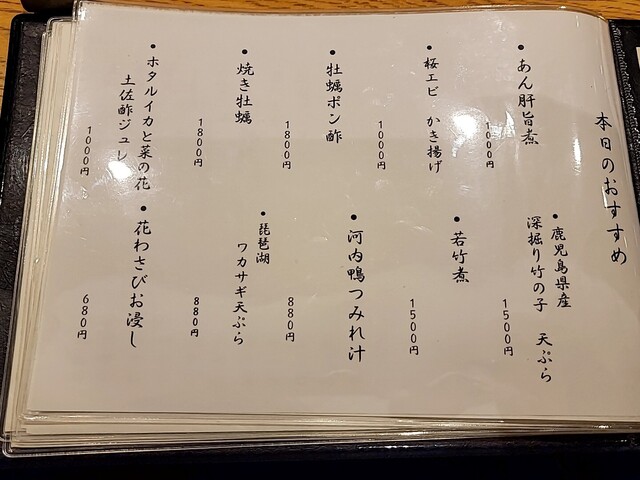 本日のおすすめ
・あん肝旨煮
1000円
・桜エビ かき揚げ
1000円
・牡蠣ポン酢
1800円
・焼き牡蠣
1800円
・ホタルイカと菜の花
土佐酢ジュレ
1000円
・鹿児島県産
深掘り竹の子 天ぷら
1500円
・若竹煮
1500円
・河内鴨つみれ汁
880円
・琵琶湖
ワカサギ天ぷら
880円
・花わさびお浸し
680円